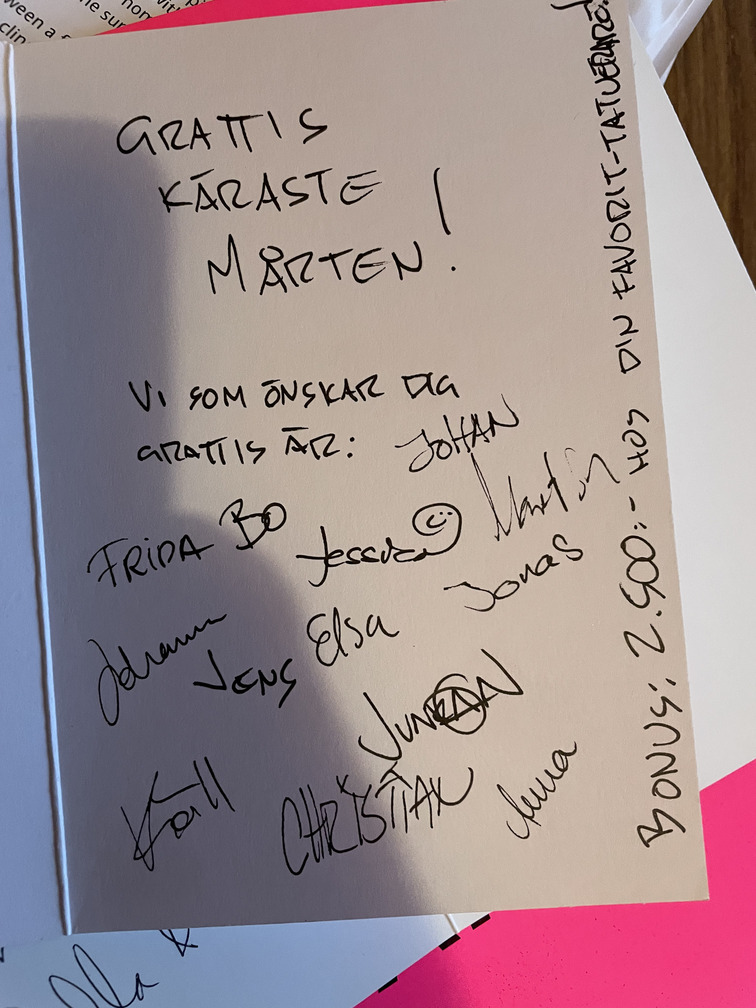 GRATTIS
KÄRASTE
MÅRTEN!
VI SOM ÖNSKAR DIG
GRATTIS ÄR: JOHAN
FRIDA BO Jessica Martin
Johanna JENS Elsa Jonas
JUNKAN
CHRISTIAN Anna
BONUS: 2.500:- HOS DIN FAVORIT-TATUERARE!